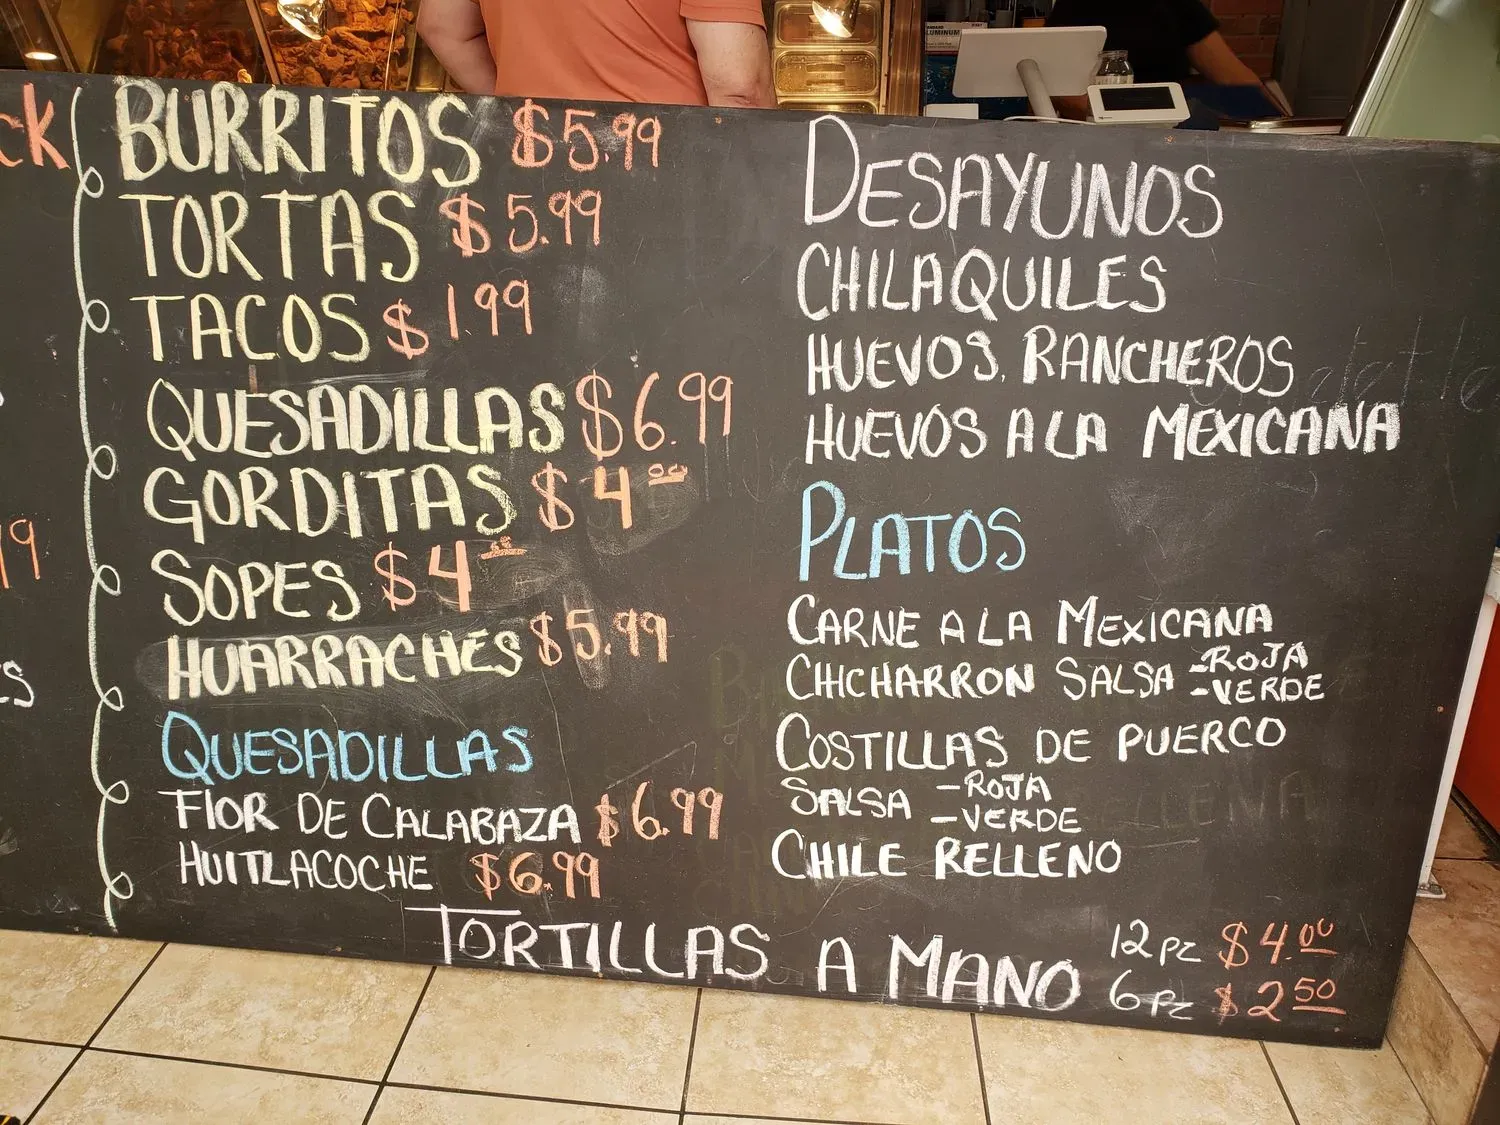 ck
BURRITOS $5.99
TORTAS $5.99
TACOS $1.99
QUESADILLAS $6.99
GORDITAS $4.00
SOPES $4.00
HUARRACHES $5.99
QUESADILLAS
FLOR DE CALABAZA $6.99
HUITLACOCHE $6.99
DESAYUNOS
CHILAQUILES
HUEVOS RANCHEROS
HUEVOS A LA MEXICANA
PLATOS
CARNE A LA MEXICANA
CHICHARRON SALSA -ROJA
-VERDE
COSTILLAS DE PUERCO
SALSA -ROJA
-VERDE
CHILE RELLENO
TORTILLAS A MANO 12 PZ $4.00
6 PZ $2.50